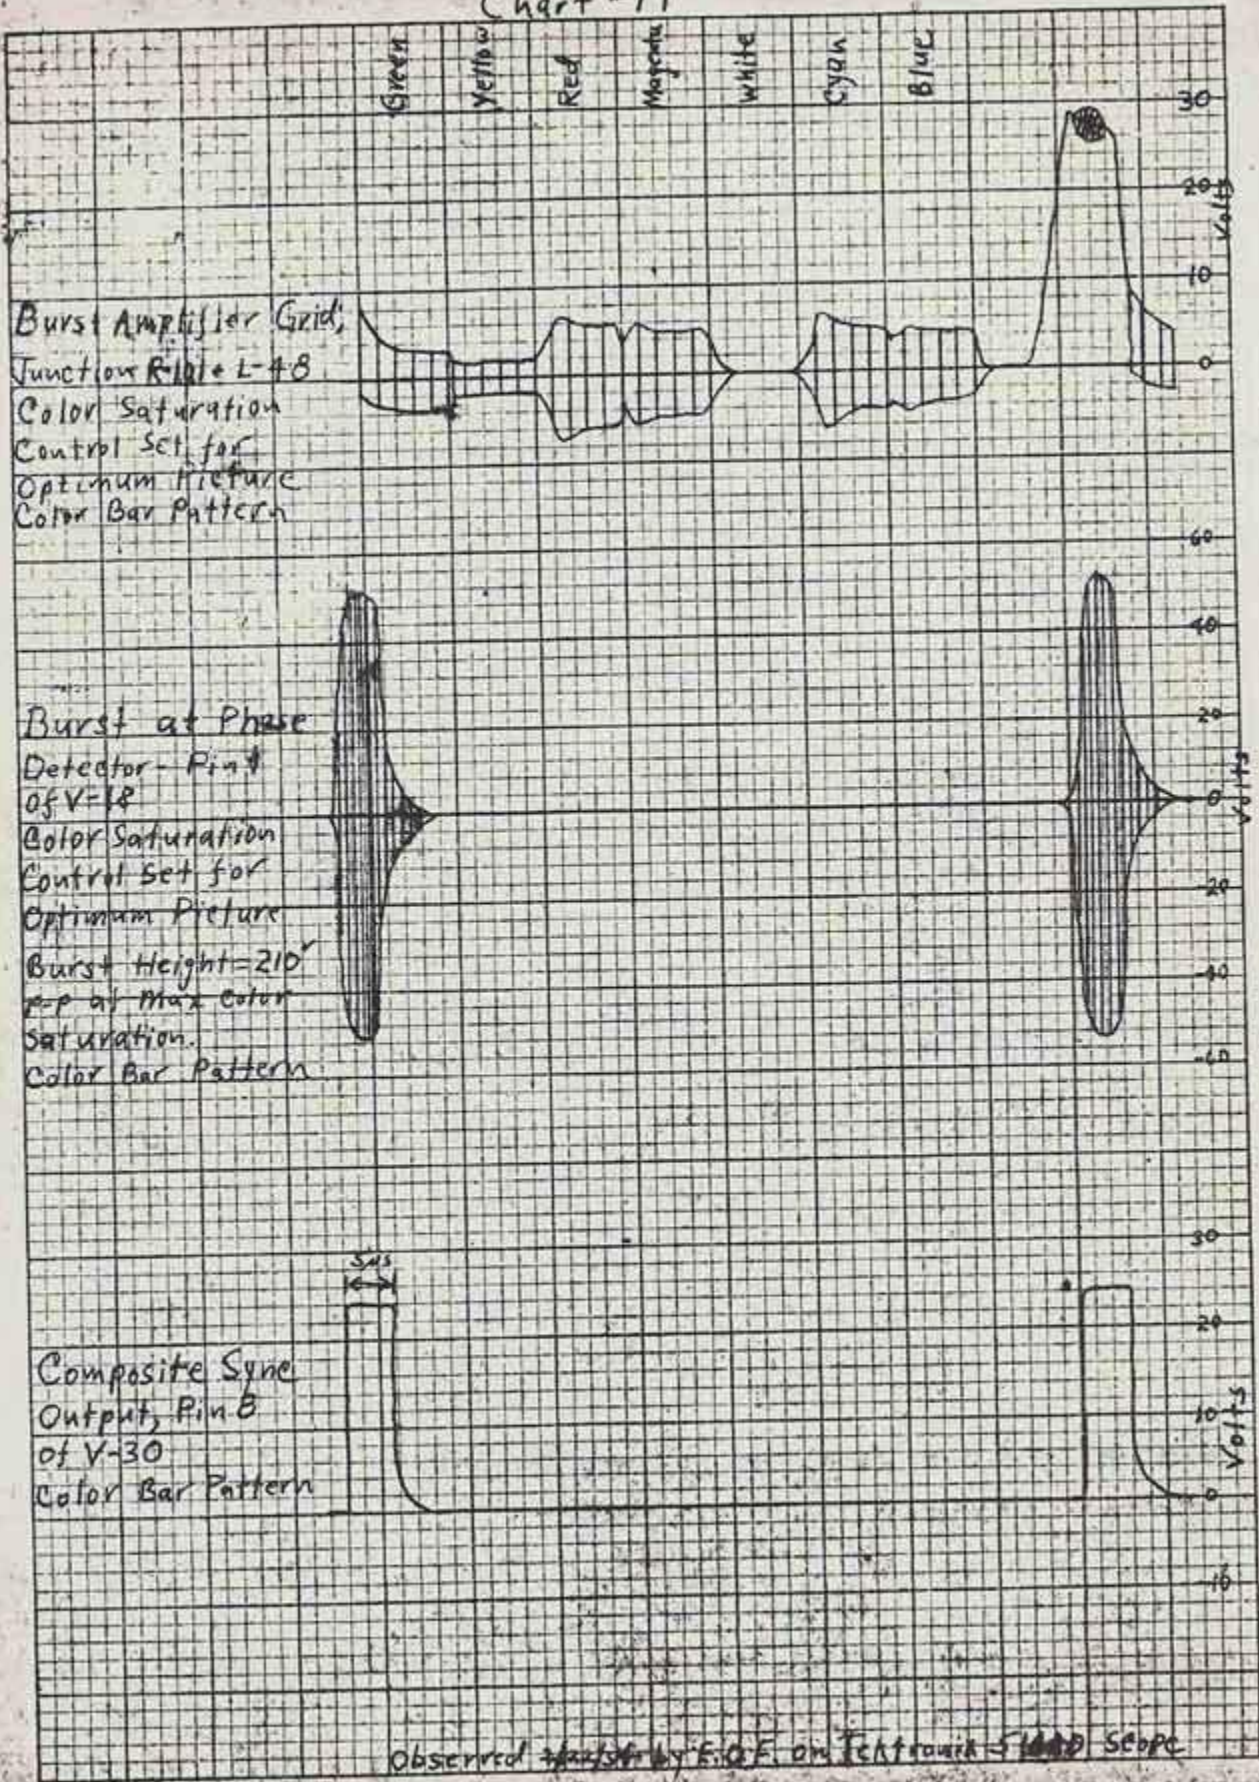 Chart - 11
Green
Yellow
Red
Magenta
White
Cyan
Blue
30
20
Volts
10
0
Burst Amplifier Grid,
Junction R-191 & L-48
Color Saturation
Control Set for
Optimum Picture
Color Bar Pattern
60
40
20
Volts
0
-20
-40
-60
Burst at Phase
Detector - Pin 1
of V-18
Color Saturation
Control Set for
Optimum Picture
Burst Height = 210v
P-P at Max Color
Saturation.
Color Bar Pattern
5μs
30
20
10
Volts
0
-10
Composite Sync
Output, Pin 8
of V-30
Color Bar Pattern
Observed by E.O.F. on Tektronix Scope